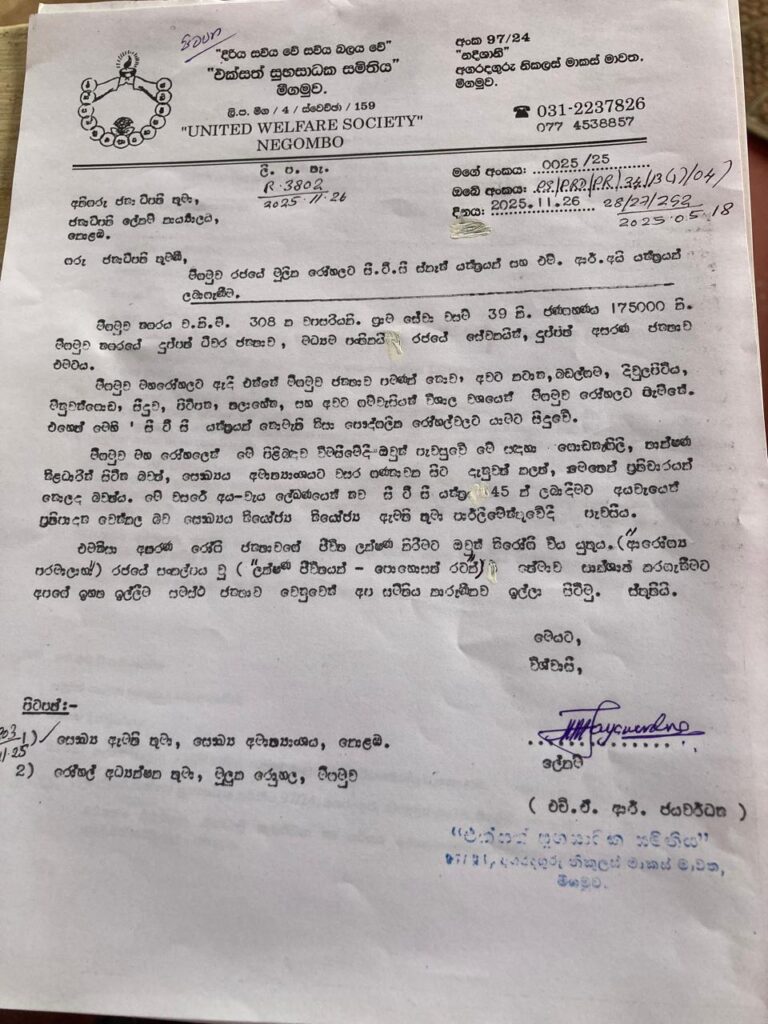 පිටපත
"දිරිය සවිය වේ සවිය බලය වේ"
"එක්සත් සුභසාධක සමිතිය"
මීගමුව.
ලි.ප. මීග / 4 / ස්වෙච්ඡා / 159
"UNITED WELFARE SOCIETY"
NEGOMBO
අංක 97/24
"නදීශානි"
අගරදගුරු නිකලස් මාකස් මාවත.
මීගමුව.
☎ 031-2237826
077 4538857
ලි. ප. තැ.
R. 3802
2025.11.26
මගේ අංකය: 0025/25
ඔබේ අංකය: PS/PRD/PR/34/13(1)/04/
28/27/252
2025.05.18
දිනය: 2025.11.26
අතිගරු ජනාධිපති තුමා,
ජනාධිපති ලේකම් කාර්යාලය,
කොළඹ.
ගරු ජනාධිපති තුමනි,
මීගමුව රජයේ මූලික රෝහලට සී.ටී.සී ස්කෑන් යන්ත්‍රයක් සහ එම්. ආර්.අයි යන්ත්‍රයක්
ලබාගැනීම.
මීගමුව නගරය ව.කි.මී. 308 ක වපසරියකි. ග්‍රාම සේවා වසම් 39 කි. ජණගහණය 175000 කි.
මීගමුව නගරයේ දුප්පත් ධීවර ජනතාව, මධ්‍යම පංතිකයින් රජයේ සේවකයින්, දුප්පත් අසරණ ජනතාව
එමටය.
මීගමුව මහරෝහලට ඇදී එන්නේ මීගමුව ජනතාව පමණක් නොව, අවට කටාන, බඩල්ගම, දිවුලපිටිය,
මිනුවන්ගොඩ, සීදුව, පිටිපන, තලාහේන, සහ අවට ගම්වැසියන් විශාල වශයෙන් මීගමුව රෝහලට පැමිනේ.
එහෙත් මෙහි ' සී ටී සී යන්ත්‍රයක් නොමැති නිසා පෞද්ගලික රෝහල්වලට යාමට සිදුවේ.
මීගමුව මහ රෝහලෙන් මේ පිළිබඳව විමසීමේදී ඔවුන් පැවසුවේ මේ සඳහා ගොඩනැගිලි, තාක්ෂණ
නිළධාරීන් සිටින බවත්, සෞඛ්‍යය අමාත්‍යාංශයට වසර ගණනාවක සිට දැනුවත් කලත්, කමෙහත් ප්‍රතිචාරයක්
නොලද බවත්ය. මේ වසරේ අය-වැය ලේඛණයෙන් නව සී ටී සී යන්ත්‍ර 45 ක් ලබාදීමට අයවැයෙන්
ප්‍රතිපාදන වෙන්කල බව සෞඛ්‍යය නියෝජ්‍ය නියෝජ්‍ය ඇමති තුමා පාර්ලිමේන්තුවේදී පැවසීය.
එමනිසා අසරණ රෝගී ජනතාවගේ ජීවිත ලක්ෂණ කිරීමට ඔවුන් නිරෝගී විය යුතුය. ("ආරෝග්‍ය
පරමාලාභා") රජයේ සංකල්පය වූ ( "ලක්ෂණ ජීවිතයක් - පොහොසත් රටක්") තේමාව සාක්ශාත් කරගැනීමට
අපගේ ඉහත ඉල්ලීම සමස්ථ ජනතාව වෙනුවෙන් අප සමිතිය කාරුණිකව ඉල්ලා සිටිමු. ස්තූතියි.
මෙයට,
විශ්වාසී,
ලේකම්
( එච්.ඒ. ආර්. ජයවර්ධන )
"එක්සත් සුභසාධක සමිතිය"
97/24, අගරදගුරු නිකුලස් මාකස් මාවත,
මීගමුව.
පිටපත්:-
1) ✓ සෞඛ්‍ය ඇමති තුමා, සෞඛ්‍ය අමාත්‍යාංශය, කොළඹ.
2) රෝහල් අධ්‍යක්ෂක තුමා, මූලික රෝහල, මීගමුව